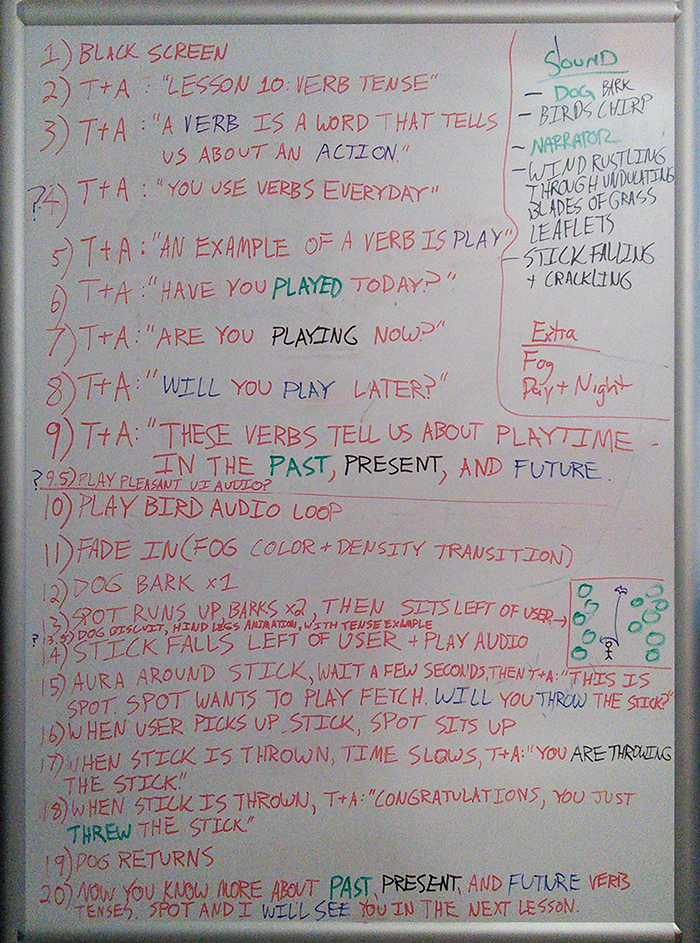 1) BLACK SCREEN
2) T+A: "LESSON 10: VERB TENSE"
3) T+A: "A VERB IS A WORD THAT TELLS
US ABOUT AN ACTION."
?4) T+A: "YOU USE VERBS EVERYDAY"
5) T+A: "AN EXAMPLE OF A VERB IS PLAY"
6) T+A: "HAVE YOU PLAYED TODAY?"
7) T+A: "ARE YOU PLAYING NOW?"
8) T+A: "WILL YOU PLAY LATER?"
9) T+A: "THESE VERBS TELL US ABOUT PLAYTIME -
IN THE PAST, PRESENT, AND FUTURE.
?9.5) PLAY PLEASANT UI AUDIO?
10) PLAY BIRD AUDIO LOOP
11) FADE IN (FOG COLOR + DENSITY TRANSITION)
12) DOG BARK x1
13) SPOT RUNS UP, BARKS x2, THEN SITS LEFT OF USER→
?13.5) DOG BISCUIT, HIND LEGS ANIMATION, WITH TENSE EXAMPLE
14) STICK FALLS LEFT OF USER + PLAY AUDIO
15) AURA AROUND STICK, WAIT A FEW SECONDS, THEN T+A: "THIS IS
SPOT. SPOT WANTS TO PLAY FETCH. WILL YOU THROW THE STICK?"
16) WHEN USER PICKS UP STICK, SPOT SITS UP
17) WHEN STICK IS THROWN, TIME SLOWS, T+A: "YOU ARE THROWING
THE STICK."
18) WHEN STICK IS THROWN, T+A: "CONGRATULATIONS, YOU JUST
THREW THE STICK."
19) DOG RETURNS
20) NOW YOU KNOW MORE ABOUT PAST, PRESENT, AND FUTURE VERB
TENSES. SPOT AND I WILL SEE YOU IN THE NEXT LESSON.
SOUND
- DOG BARK
- BIRDS CHIRP
- NARRATOR
- WIND RUSTLING
THROUGH UNDULATING
BLADES OF GRASS
LEAFLETS
- STICK FALLING
+ CRACKLING
Extra
Fog
Day + Night